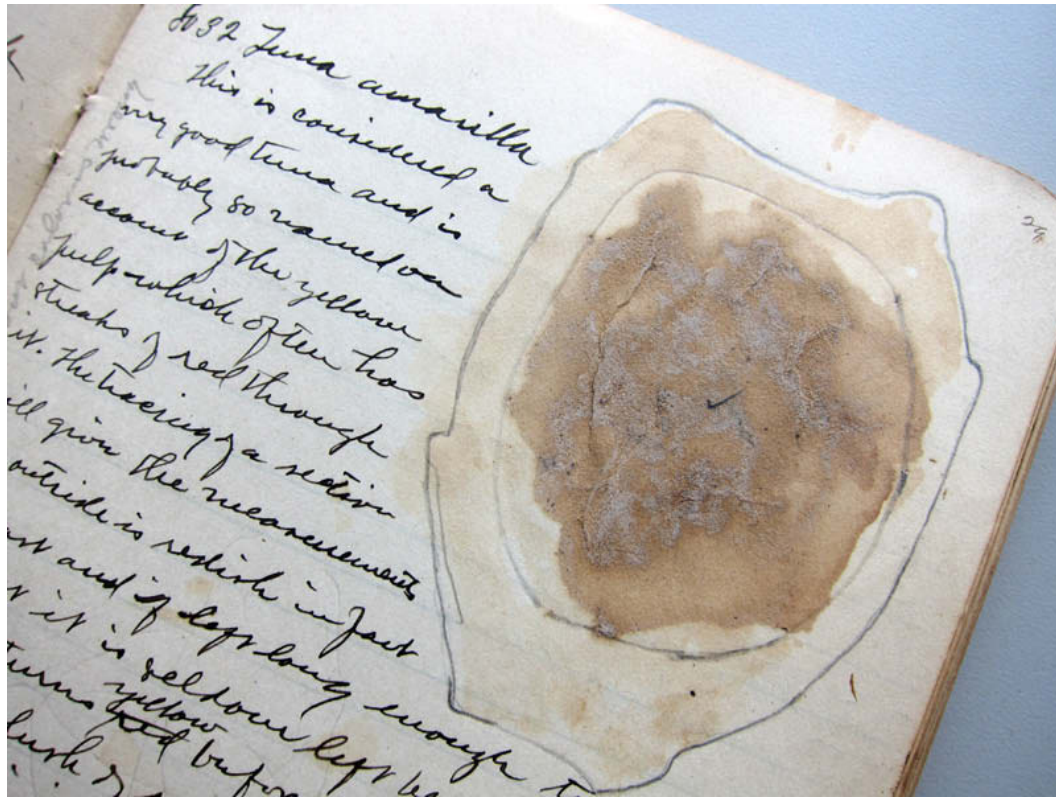 8032 Tuna amarilla
This is considered a
very good tuna and is
probably so named on
account of the yellow
pulp which often has
streaks of red through
it. The tracing of a section
ill give the measurements
outside is redish in fact
and if left long enough
it is seldom left
yellow
turns red before
lush of